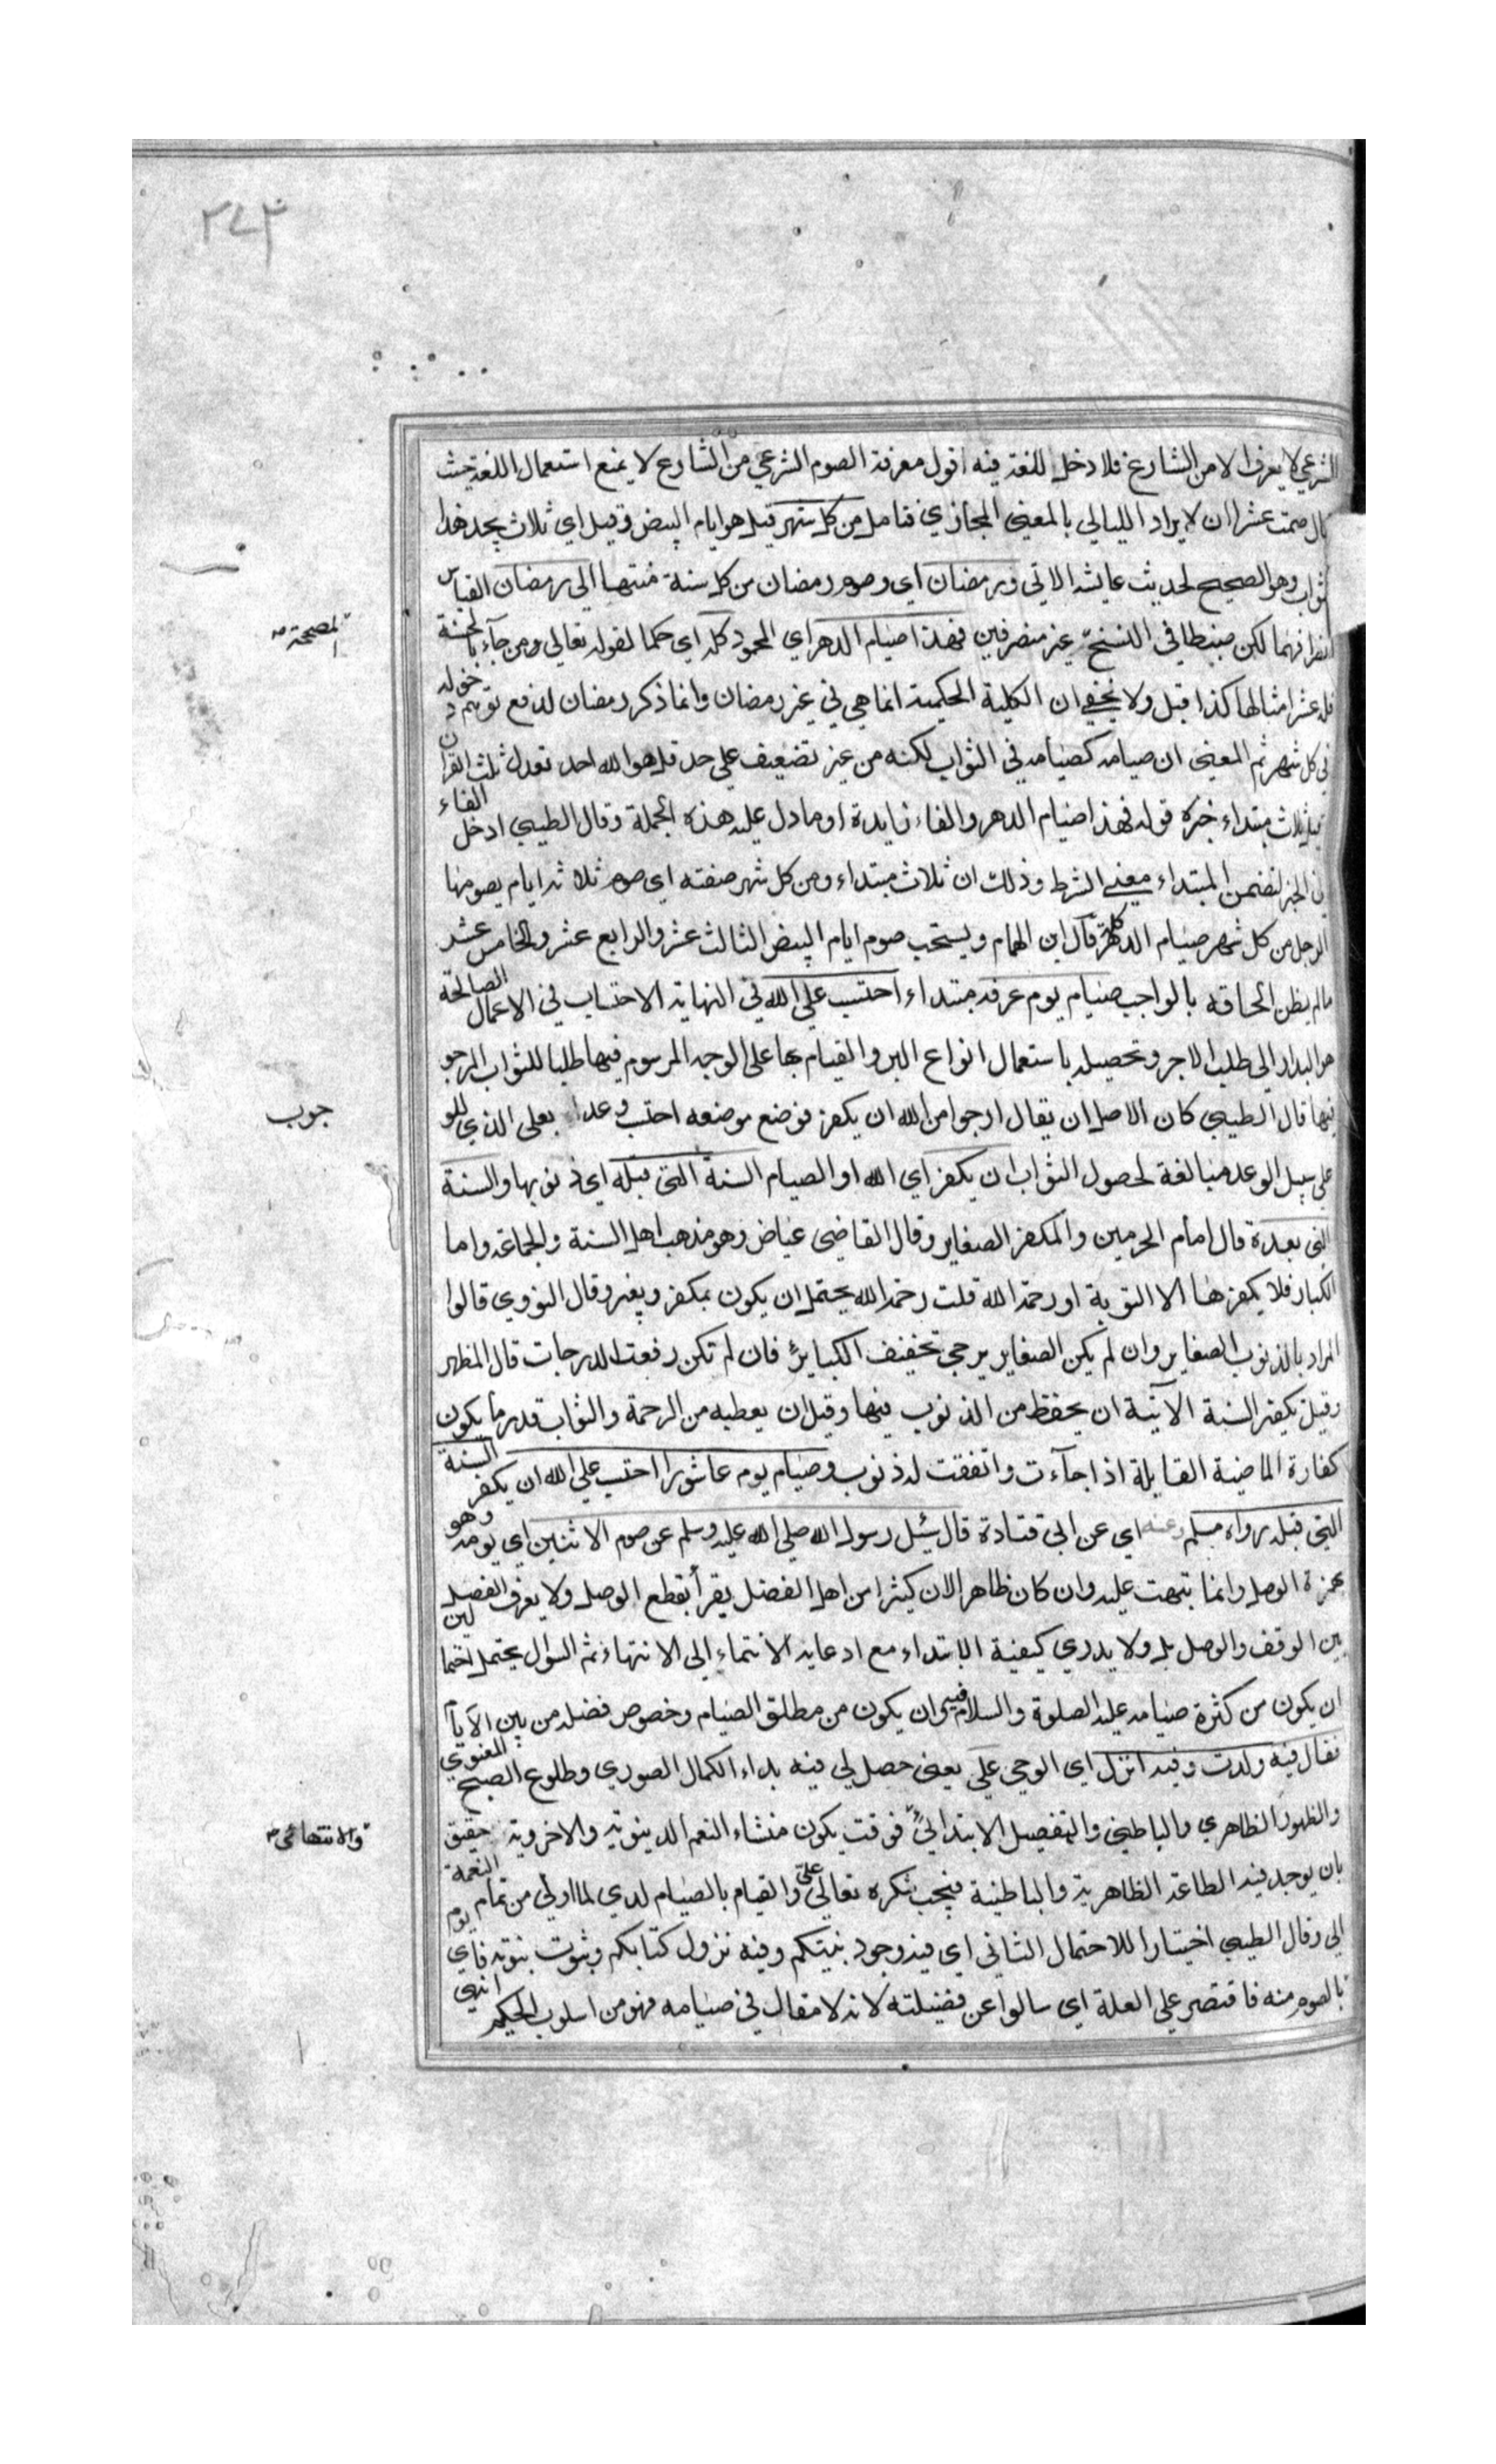 ٢٤٣
الشرعي لا يعرف الا من الشارع فلا دخل للغة فيه اقول معرفة الصوم الشرعي من الشارع لا يمنع استعمال اللغة حيث
قال صمت عشرا ان لا يراد الليالي بالمعنى المجازي فتامل من كل شهر قيل هو ايام البيض وقيل اي ثلاث يجد هذا
الثواب وهو الصحيح لحديث عايشه الاتي ورمضان اي وصوم رمضان من كل سنة منتهيا الى رمضان القياس
انصرافهما لكن ضبطا في النسخ غير منصرفين فهذا صيام الدهر اي المحمود كله اي حكما لقوله تعالى ومن جآء بالحسنة
المصححة صح
فله عشر امثالها كذا قيل ولا يخفى ان الكلية الحكمية انما هي في غير رمضان وانما ذكر رمضان لدفع توهم دخوله
في كل شهر ثم المعنى ان صيامه كصيامه في الثواب لكنه من غير تضعيف على حد قل هو الله احد تعدل ثلث القرآن
قيل ثلاث مبتداء خبره قوله فهذا صيام الدهر والفاء زايدة او ما دل عليه هذه الجملة وقال الطيبي ادخل الفاء
في الخبر لتضمن المبتداء معنى الشرط وذلك ان ثلاث مبتداء ومن كل شهر صفته اي صوم ثلاثة ايام يصومها
الرجل من كل شهر صيام الدهر كله قال ابن الهمام ويستحب صوم ايام البيض الثالث عشر والرابع عشر والخامس عشر
مالم يظن الحاقه بالواجب صيام يوم عرفه مبتداء احتسب على الله في النهاية الاحتساب في الاعمال الصالحة
هو البدار الى طلب الاجر وتحصيله باستعمال انواع البر والقيام بها على الوجه المرسوم فيها طلبا للثواب المرجو
فيها قال الطيبي كان الاصل ان يقال ارجوا من الله ان يكفر فوضع موضعه احتسب وعداه بعلى الذي للو
جوب
على سبيل الوعد مبالغة لحصول الثواب ان يكفر اي الله او الصيام السنة التي قبله اي ذنوبها والسنة
التي بعده قال امام الحرمين والمكفر الصغاير وقال القاضي عياض وهو مذهب اهل السنة والجماعة واما
الكباير فلا يكفرها الا التوبة او رحمة الله قلت رحمة الله يحتمل ان يكون بمكفر وبغيره وقال النووي قالوا
المراد بالذنوب الصغاير وان لم يكن الصغاير يرجى تخفيف الكباير فان لم تكن رفعت الدرجات قال المظهر
وقيل تكفير السنة الآتية ان يحفظ من الذنوب فيها وقيل ان يعطيه من الرحمة والثواب قدر ما يكون
كفارة الماضية القابلة اذا جآءت واتفقت له ذنوب وصيام يوم عاشورا احتسب على الله ان يكفر السنة
التي قبله رواه مسلم وعنه اي عن ابي قتادة قال سئل رسول الله صلى الله عليه وسلم عن صوم الاثنين اي يومه وهو
بهمزة الوصل وانما نبهت عليه وان كان ظاهرا لان كثيرا من اهل الفضل يقرأ بقطع الوصل ولا يعرف الفصل
بين الوقف والوصل بل ولا يدري كيفية الابتداء مع ادعايه الانتماء الى الانتهاء ثم السؤال يحتمل احتما لين
ان يكون من كثرة صيامه عليه الصلوة والسلام فيه وان يكون من مطلق الصيام وخصوص فضله من بين الايام
فقال فيه ولدت وفيه انزل اي الوحي علي يعنى حصل لي فيه بداء الكمال الصوري وطلوع الصبح المعنوي
والظهور الظاهري والباطني والتفضيل الابتدائي فوقت يكون منشاء النعم الدنيوية والاخروية حقيق
والانتهائي صح
بان يوجد فيه الطاعة الظاهرية والباطنية فيجب شكره تعالى علي والقيام بالصيام لدي لما اولى من تمام النعمة
الي وقال الطيبي اختيارا للاحتمال الثاني اي فيه وجود نبيكم وفيه نزول كتابكم وثبوت نبوته فاي يوم
بالصوم منه فاقتصر على العلة اي سالوا عن فضيلته لانه لا مقال في صيامه فهو من اسلوب الحكيم انتهى